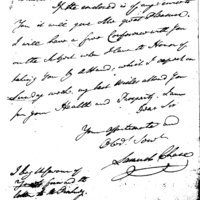 If the enclosed is of any service to
You it will give Me great Pleasure.
I will have a free Conference with You
on the Subject when I have the Honor of
taking You by the Hand, which I expect on
Sunday week, my best Wishes attend You
for your Health and Prosperity. I am
Dear Sir
Your Affectionate and
Obedt. Servt.
Samuel Chase
I beg
forward the
letter to